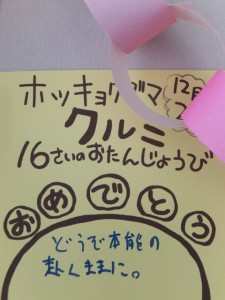 ホッキョクグマ
12月
クルミ
16さいのおたんじょうび
おめでとう
どうぞ本能の
赴くままに。